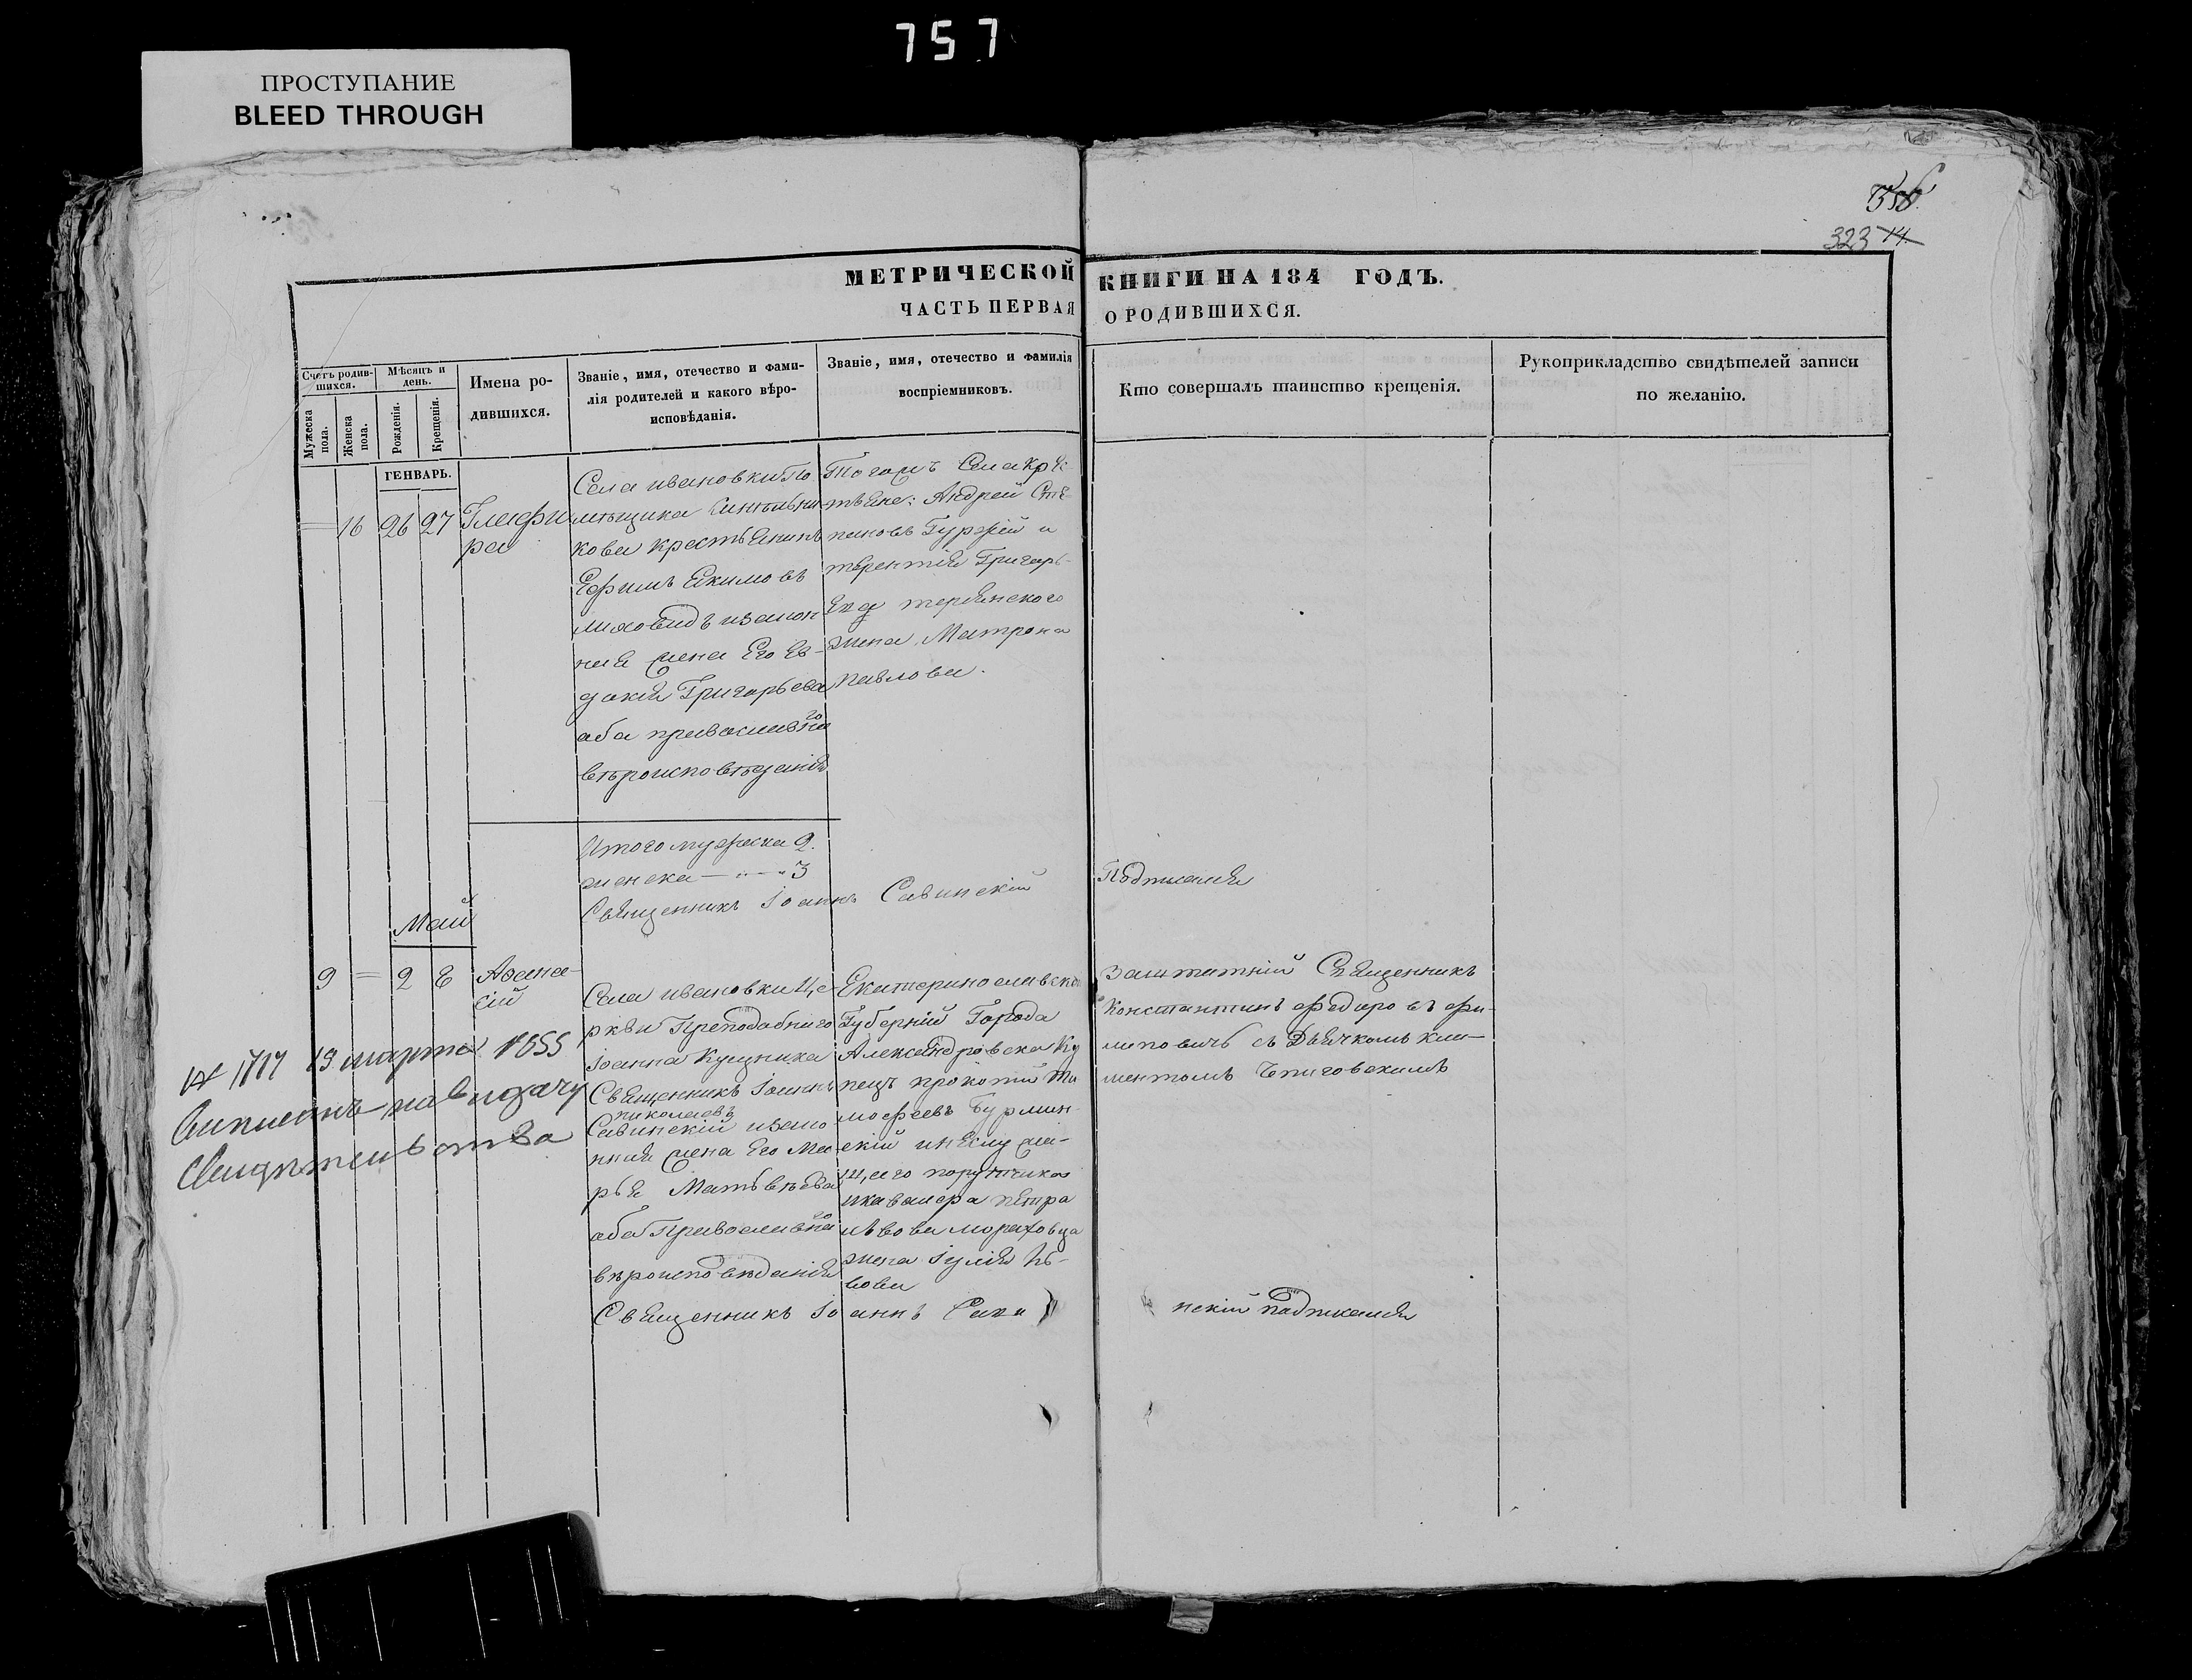 757
ПРОСТУПАНИЕ
BLEED THROUGH
323 14.
МЕТРИЧЕСКОЙ КНИГИ НА 184 ГОДЪ.
ЧАСТЬ ПЕРВАЯ О РОДИВШИХСЯ.
Счетъ родив-
шихся.
Мѣсяцъ и
день.
Мужеска
пола.
Женска
пола.
Рожденія.
Крещенія.
Имена ро-
дившихся.
Званіе, имя, отечество и фами-
лія родителей и какого вѣро-
исповѣданія.
Званіе, имя, отечество и фамилія
воспріемниковъ.
Кто совершалъ таинство крещенія.
Рукоприкладство свидѣтелей записи
по желанію.
ГЕНВАРЬ.
16 26 27
Глафи
ра
Села ивановки По
мѣщика
кова крестьянинъ
Ефимъ Екимовъ
изакон
ная жена Его Ев-
докия Григорьева
аба православнаго
вѣроисповѣдания
Тогожъ Села кре
стьяне: Андрей Сте
пановъ Гуржій и
терентия Григорь-
жена Матрона
павлова.
Итого мужеска 2.
женска — 3
Священникъ Іоаннъ Савинскій
Подписался
Май
9 = 2 8
Афана-
сій
Села ивановки Це-
ркви Преподобнаго
Іоанна Кущника
Священникъ Іоаннъ
николаевъ
Савинскій изако
нная жена Его Ма
рья Матвѣева
аба Православнаго
вѣроисповѣдания
Екатеринославской
Губерній Города
Александровска Ку
пецъ прокопій Ти
мофеевъ Бурмин-
скій
порутчика
икавалера петра
львова мораховца
жена Іулия Ль-
вова
Заштатній Священникъ
Константинъ Федоровъ Фи-
липовичъ съ Дьячкомъ Кли-
ментомъ Чниговскимъ
Священникъ Іоаннъ Сави нскій подписался
№ 1717 19 марта 1855
на видачу
Свидѣтельства